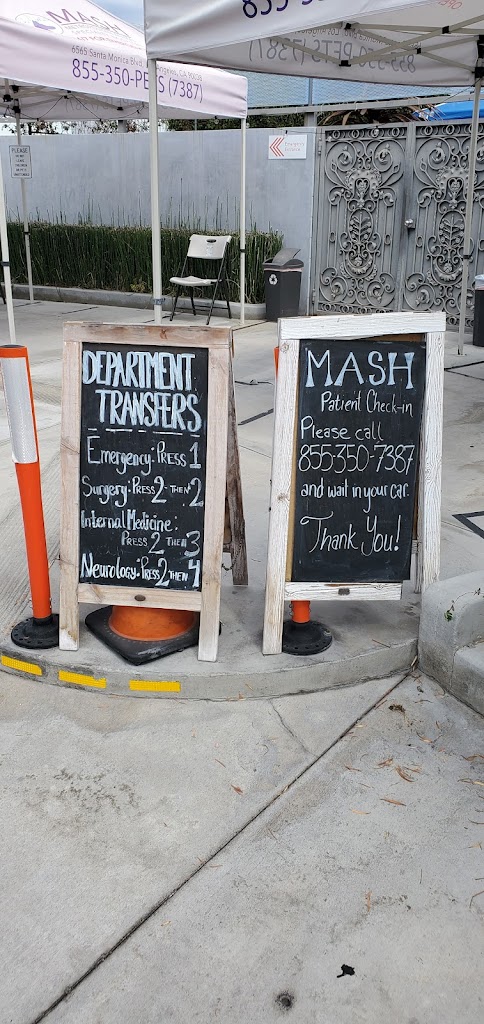 MASH
6565 Santa Monica Blvd.
855-350-PETS (7387)
MASH
855-
PETS (7387)
PLEASE
DEPARTMENT
TRANSFERS
Emergency: PRESS 1
Surgery: PRESS 2 THEN 2
Internal Medicine:
PRESS 2 THEN 3
Neurology: PRESS 2 THEN 4
MASH
Patient Check-in
Please call
855-350-7387
and wait in your car.
Thank You!